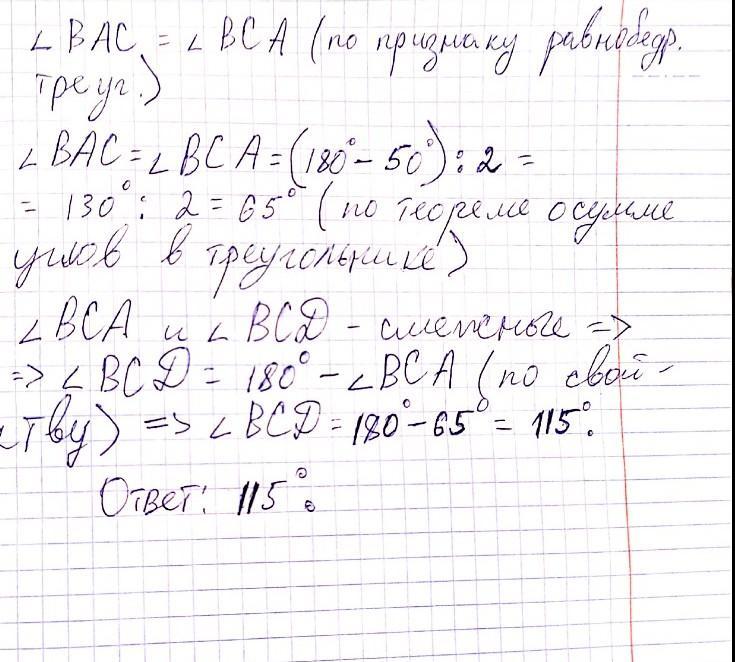 ∠BAC = ∠BCA (по признаку равнобедр.
треуг.)
∠BAC = ∠BCA = (180° - 50°) : 2 =
= 130° : 2 = 65° (по теореме о сумме
углов в треугольнике)
∠BCA и ∠BCD - смежные =>
=> ∠BCD = 180° - ∠BCA (по свой-
ству) => ∠BCD = 180° - 65° = 115°.
Ответ: 115°.